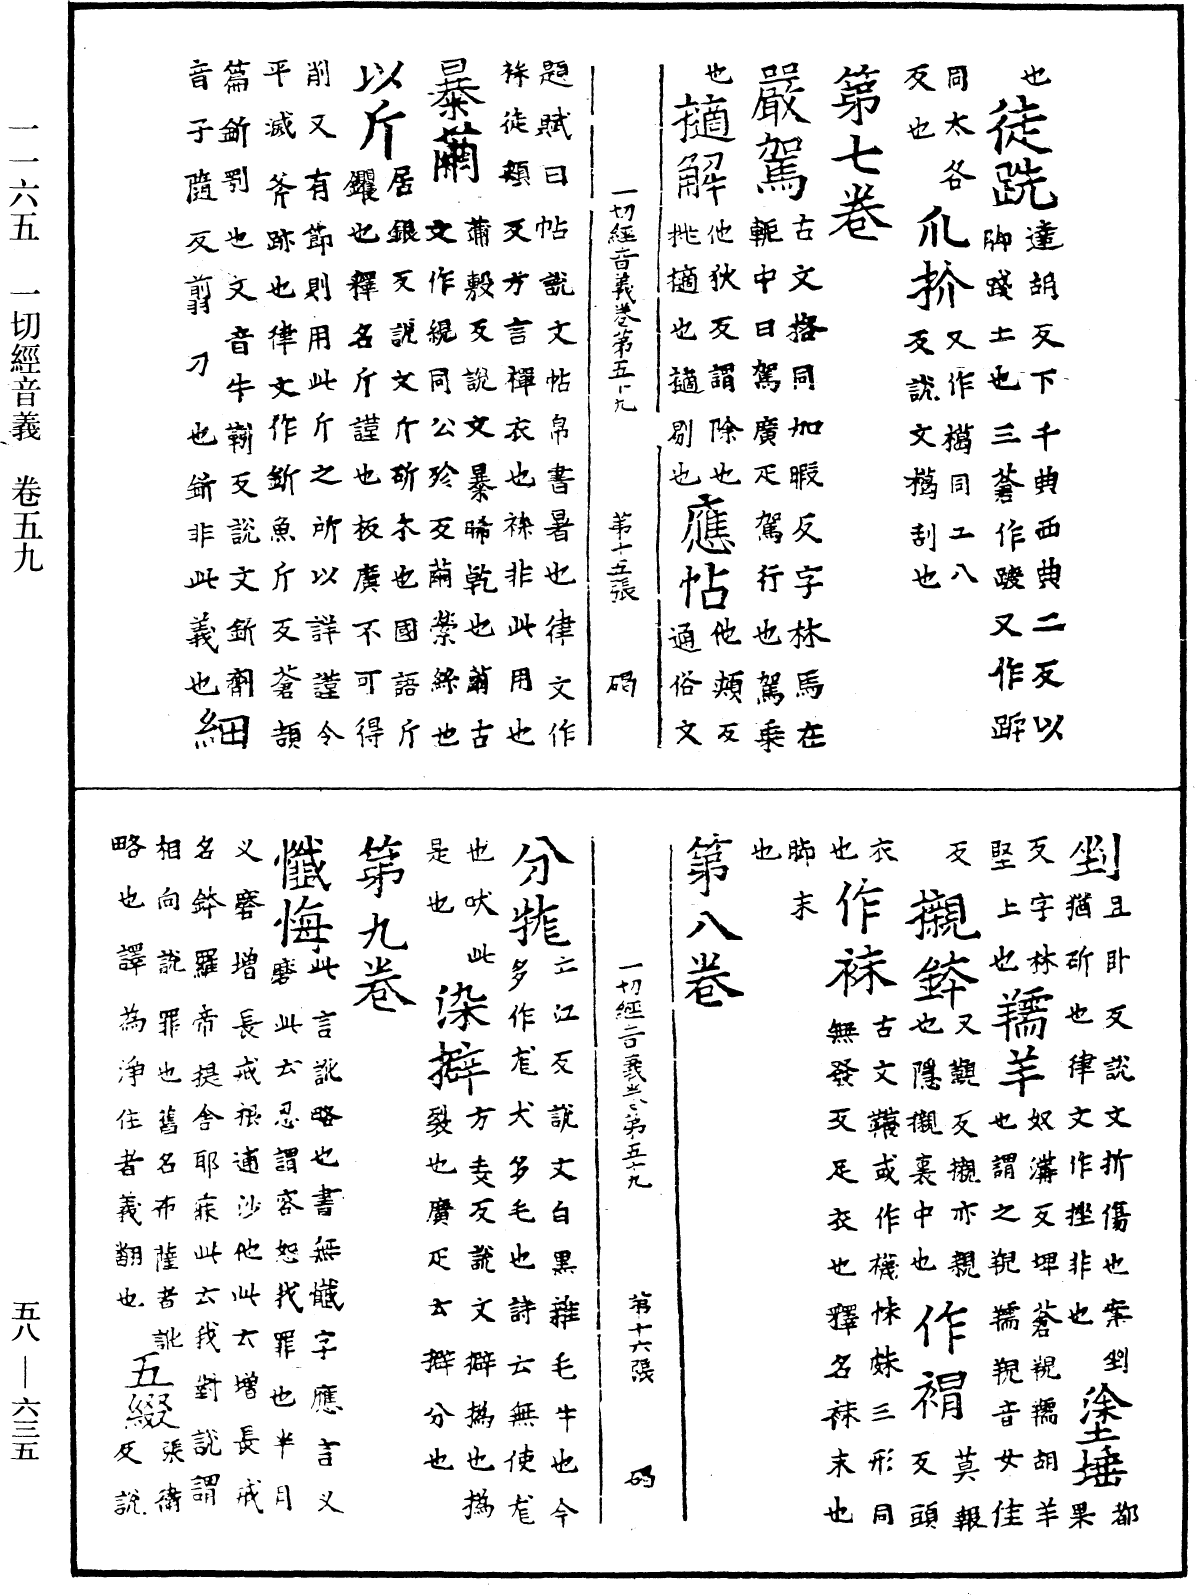 一一六五　一切經音義　卷五九
五八—六三五
也徒跣達胡反下千典西典二反以
脚踐土也三蒼作踆又作䟫
同太各爪扴又作㨟同工八
反也反說文㨟刮也
第七卷
嚴駕古文㧻同加暇反字林馬在
軛中曰駕廣疋駕行也駕乘
也擿解他狄反謂除也應帖他頰反
挑擿也擿剔也通俗文
一切經音義卷第五十九　第十五張　碼
題賦曰帖說文帖帛書署也律文作
褋徒頰反方言襌衣也褋非此用也
暴繭蒲穀反說文暴晞乾也繭古
文作絸同公殄反繭縈絲也
以斤居銀反說文斤斫木也國語斤
钁也釋名斤謹也板廣不可得
削又有節則用此斤之所以詳謹令
平滅斧跡也律文作釿魚斤反蒼頡
篇釿剞也文音牛靳反說文釿劑細
音子隨反翦刀也釿非此義也
剉且卧反說文折傷也案剉塗埵都
猶斫也律文作挫非也果
反字林羺羊奴溝反埤蒼䍲羺胡羊
堅上也也謂之䍲羺䍲音女佳
反襯鉢又覿反襯亦親作䙃莫報
也隱襯裏中也反頭
衣作袜古文韈或作襪怽妹三形同
也無發反足衣也釋名袜末也
脚末
也
第八卷
一切經音義卷第五十九　第十六張　碼
分牻亡江反說文白黑雜毛牛也今
多作尨犬多毛也詩云無使尨
也吠此染擗方麦反說文擗撝也撝
是也裂也廣疋云擗分也
第九卷
懺悔此言訛略也書無懺字應言义
磨此云忍謂容恕我罪也半月
义磨增長戒根逋沙他此云增長戒
名鉢羅帝提舍耶寐此云我對說謂
相向說罪也舊名布薩者訛五綴張衛
略也譯為淨住者義翻也反說